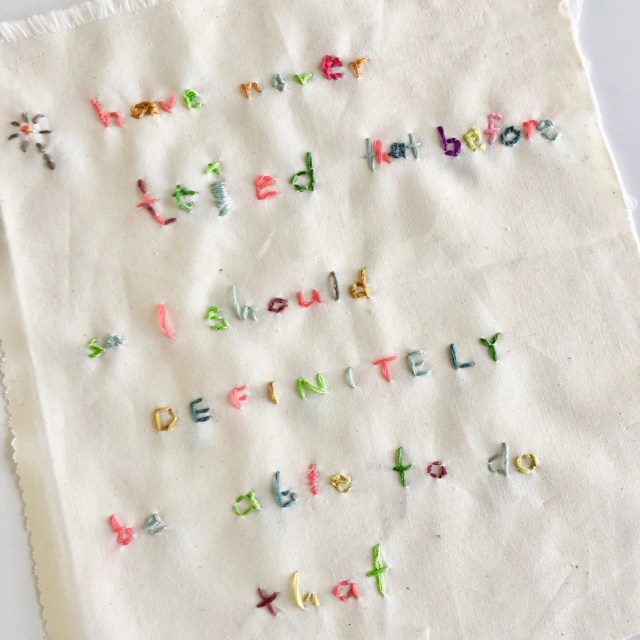 have never
tried that before
so I should
DEFINITELY
be able to do
that